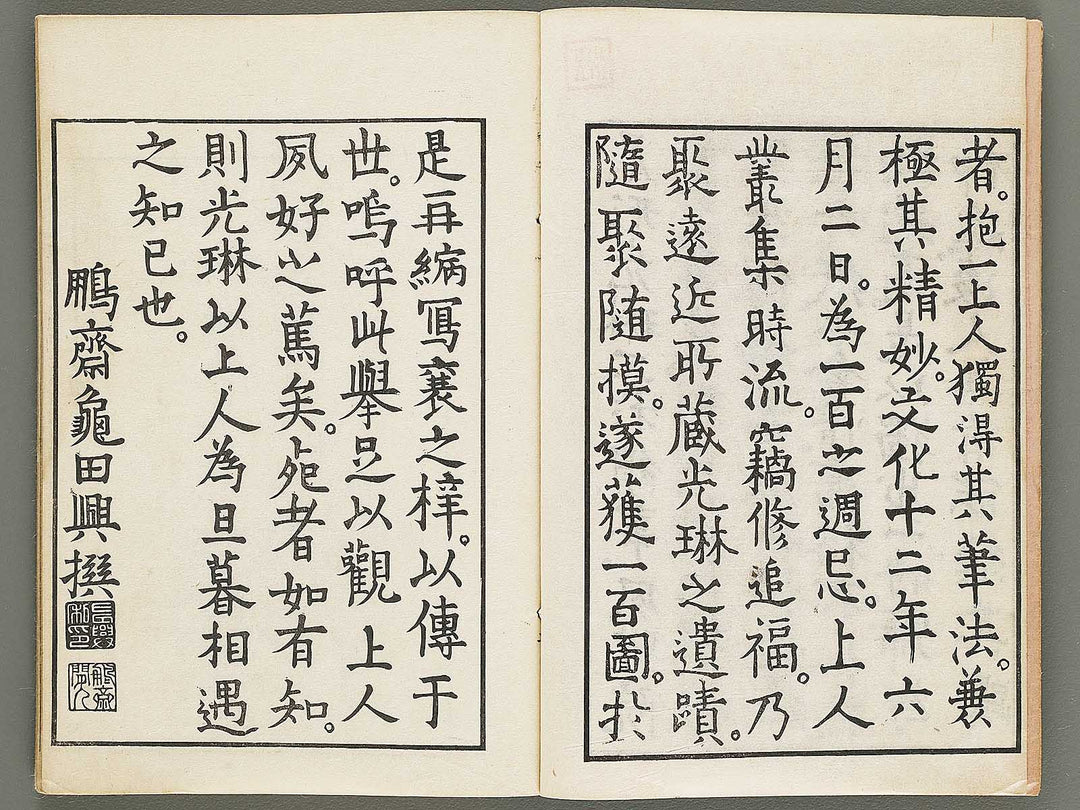 者。抱一上人獨淂其筆法。兼
極其精妙。文化十二年六
月二日。為一百之週忌。上人
叢集時流。竊修追福。乃
聚遠近所蔵光琳之遺蹟。
隨聚隨摸。遂獲一百圖。於
是再縮寫襄之梓。以傳于
世。嗚呼此舉足以觀上人
夙好之篤矣。死者如有知。
則光琳以上人為旦暮相遇
之知已也。
鵬齋龜田興撰